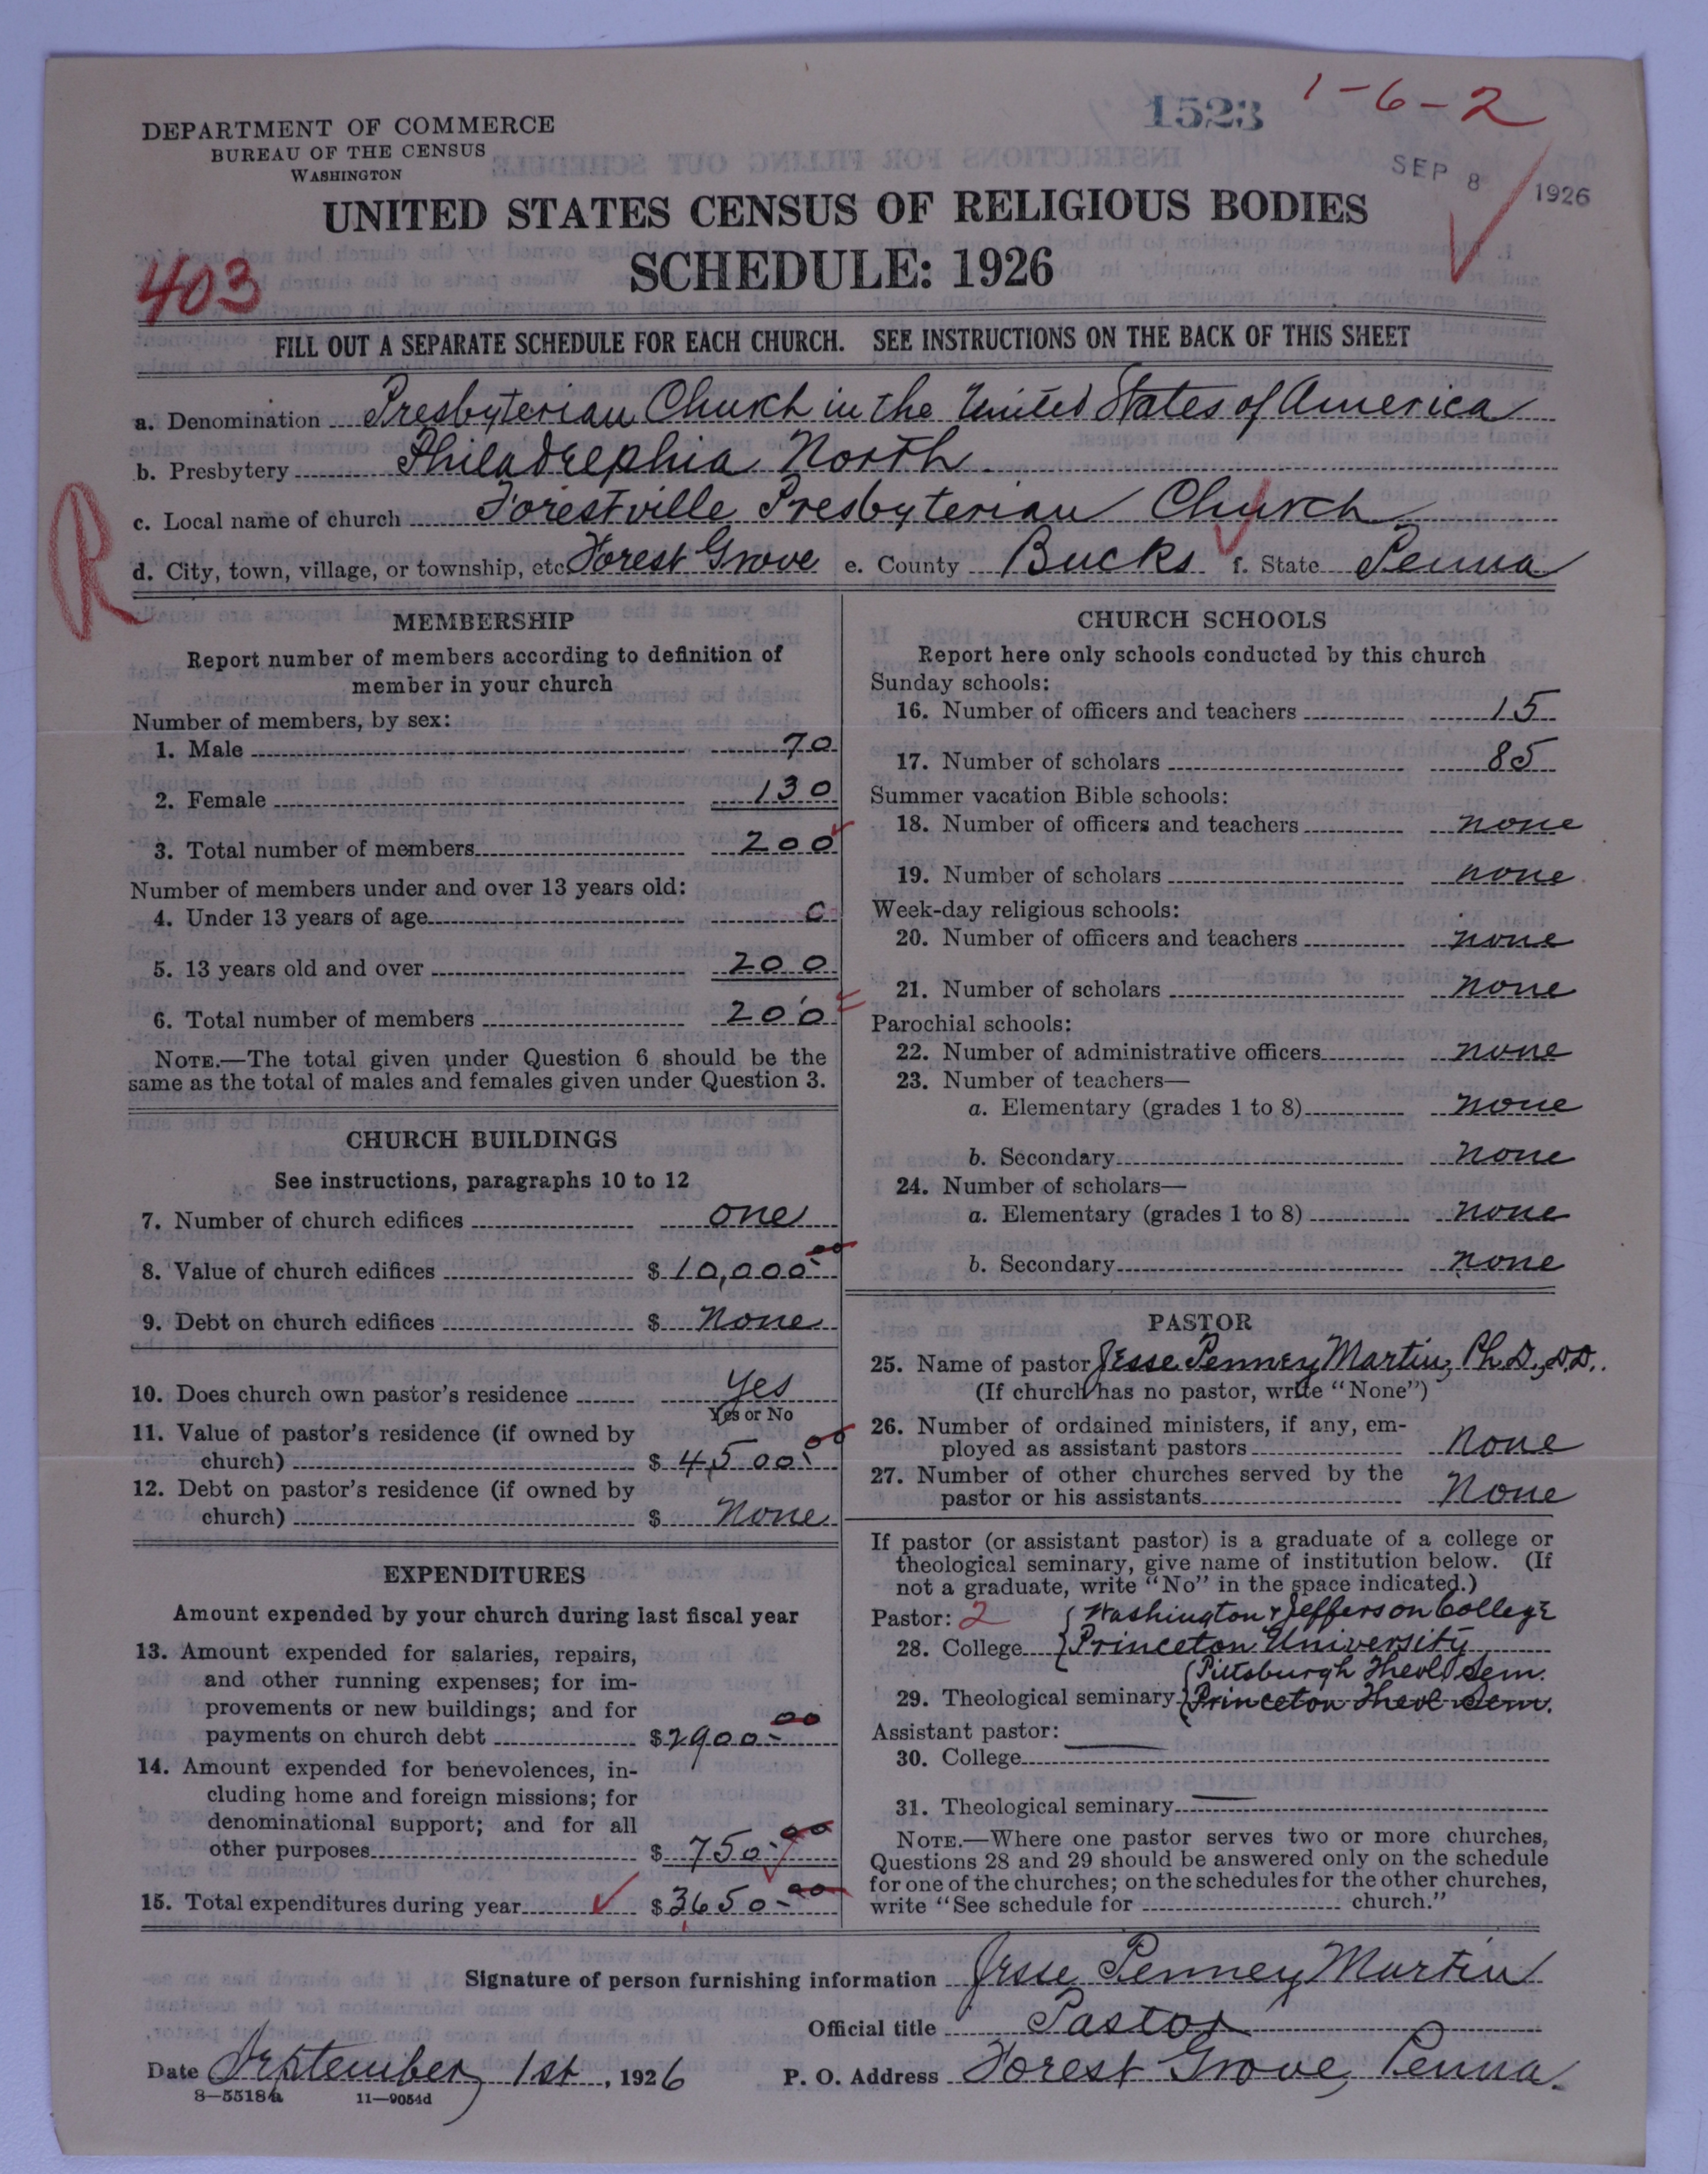 1523 1-6-2
DEPARTMENT OF COMMERCE
BUREAU OF THE CENSUS
WASHINGTON
SEP 8 1926
UNITED STATES CENSUS OF RELIGIOUS BODIES
SCHEDULE: 1926
403
FILL OUT A SEPARATE SCHEDULE FOR EACH CHURCH. SEE INSTRUCTIONS ON THE BACK OF THIS SHEET
a. Denomination Presbyterian Church in the United States of America
b. Presbytery Philadelphia North
R
c. Local name of church Forestville Presbyterian Church
d. City, town, village, or township, etc. Forest Grove e. County Bucks f. State Penna
MEMBERSHIP
Report number of members according to definition of
member in your church
Number of members, by sex:
1. Male 70
2. Female 130
3. Total number of members 200
Number of members under and over 13 years old:
4. Under 13 years of age 0
5. 13 years old and over 200
6. Total number of members 200
NOTE.—The total given under Question 6 should be the
same as the total of males and females given under Question 3.
CHURCH BUILDINGS
See instructions, paragraphs 10 to 12
7. Number of church edifices one
8. Value of church edifices $ 10,000.00
9. Debt on church edifices $ None
10. Does church own pastor's residence Yes
Yes or No
11. Value of pastor's residence (if owned by
church) $ 4,500.00
12. Debt on pastor's residence (if owned by
church) $ None
EXPENDITURES
Amount expended by your church during last fiscal year
13. Amount expended for salaries, repairs,
and other running expenses; for im-
provements or new buildings; and for
payments on church debt $2900.00
14. Amount expended for benevolences, in-
cluding home and foreign missions; for
denominational support; and for all
other purposes $ 750.00
15. Total expenditures during year $3650.00
CHURCH SCHOOLS
Report here only schools conducted by this church
Sunday schools:
16. Number of officers and teachers 15
17. Number of scholars 85
Summer vacation Bible schools:
18. Number of officers and teachers none
19. Number of scholars none
Week-day religious schools:
20. Number of officers and teachers none
21. Number of scholars none
Parochial schools:
22. Number of administrative officers none
23. Number of teachers—
a. Elementary (grades 1 to 8) none
b. Secondary none
24. Number of scholars—
a. Elementary (grades 1 to 8) none
b. Secondary none
PASTOR
25. Name of pastor Jesse Penney Martin, Ph.D., D.D.
(If church has no pastor, write "None")
26. Number of ordained ministers, if any, em-
ployed as assistant pastors None
27. Number of other churches served by the
pastor or his assistants None
If pastor (or assistant pastor) is a graduate of a college or
theological seminary, give name of institution below. (If
not a graduate, write "No" in the space indicated.)
Pastor: 2 Washington & Jefferson College
28. College Princeton University
Pittsburgh Theol Sem.
29. Theological seminary Princeton Theol Sem.
Assistant pastor:
30. College
31. Theological seminary
NOTE.—Where one pastor serves two or more churches,
Questions 28 and 29 should be answered only on the schedule
for one of the churches; on the schedules for the other churches,
write "See schedule for church."
Signature of person furnishing information Jesse Penney Martin
Official title Pastor
Date September 1st, 1926 P. O. Address Forest Grove, Penna.
8—5518a 11—9054d